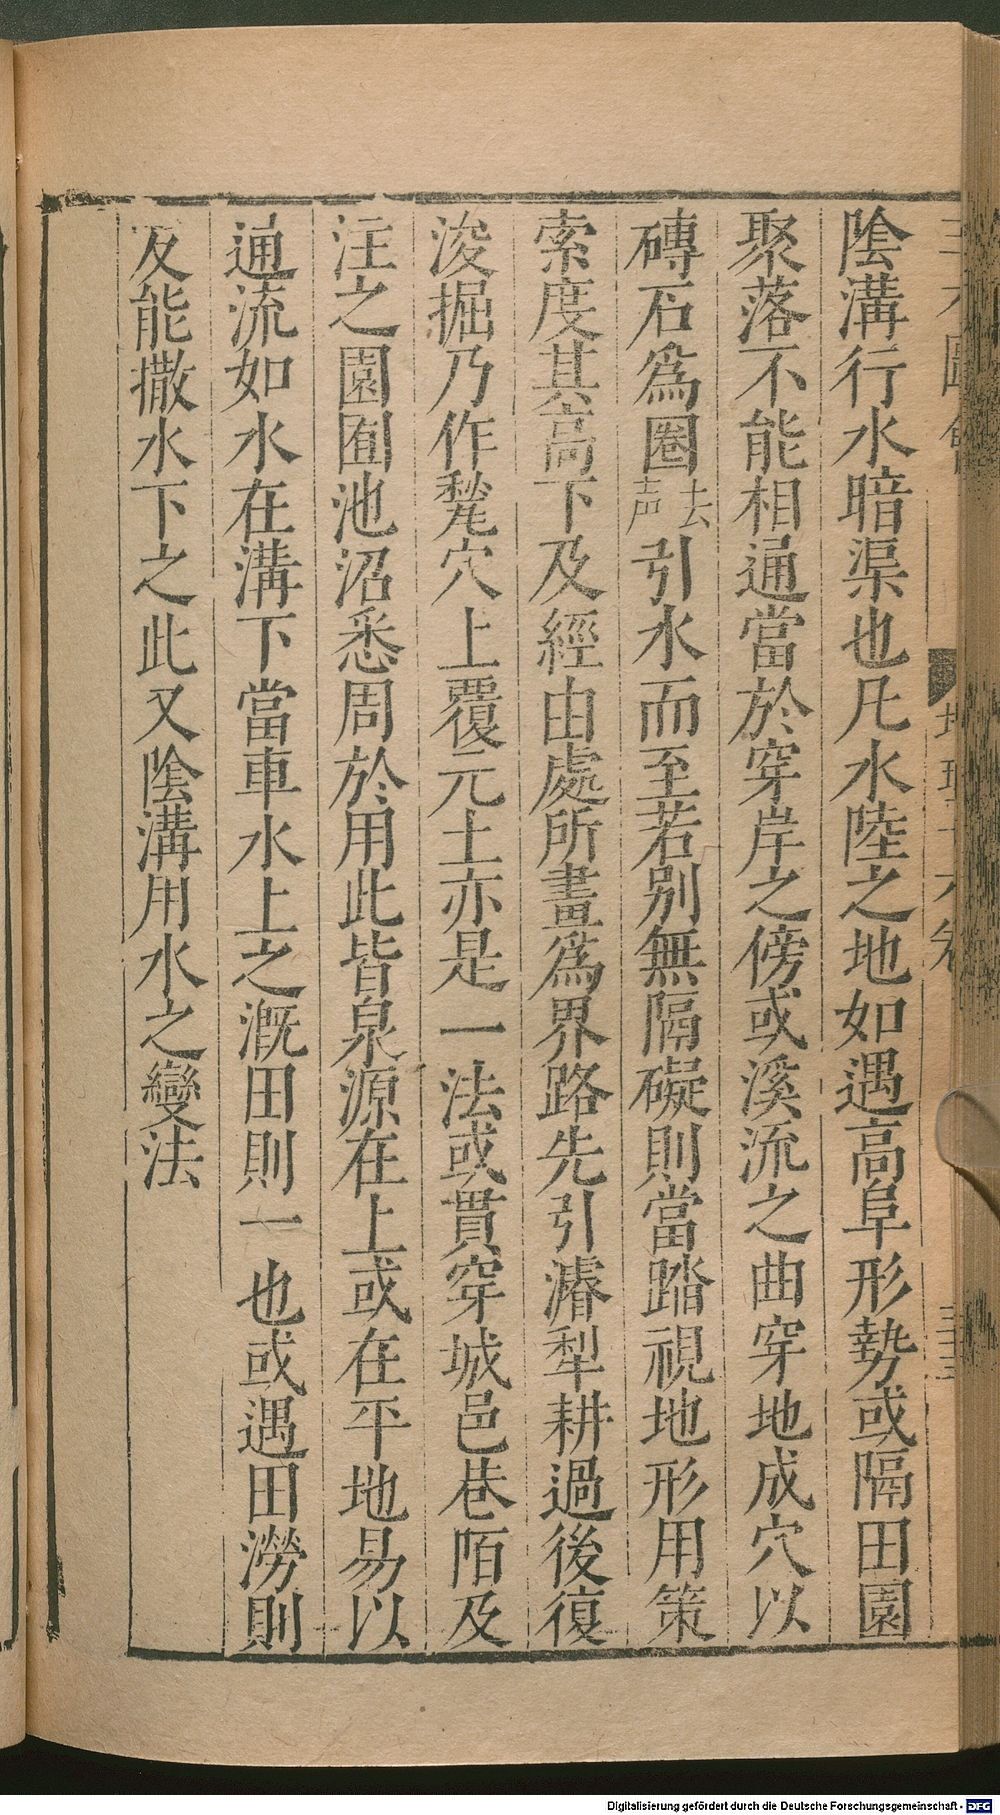 陰溝行水暗渠也凡水陸之地如遇高阜形勢或隔田園
聚落不能相通當於穿岸之傍或溪流之曲穿地成穴以
磚石爲圈去声引水而至若別無隔礙則當踏視地形用策
索度其高下及經由處所畫爲界路先引濬犁耕過後復
浚掘乃作甃穴上覆元土亦是一法或貫穿城邑巷陌及
注之園囿池沼悉周於用此皆泉源在上或在平地易以
通流如水在溝下當車水上之溉田則一也或遇田澇則
反能撒水下之此又陰溝用水之變法
圖會
地理十六卷
三十三
Digitalisierung gefördert durch die Deutsche Forschungsgemeinschaft - DFG